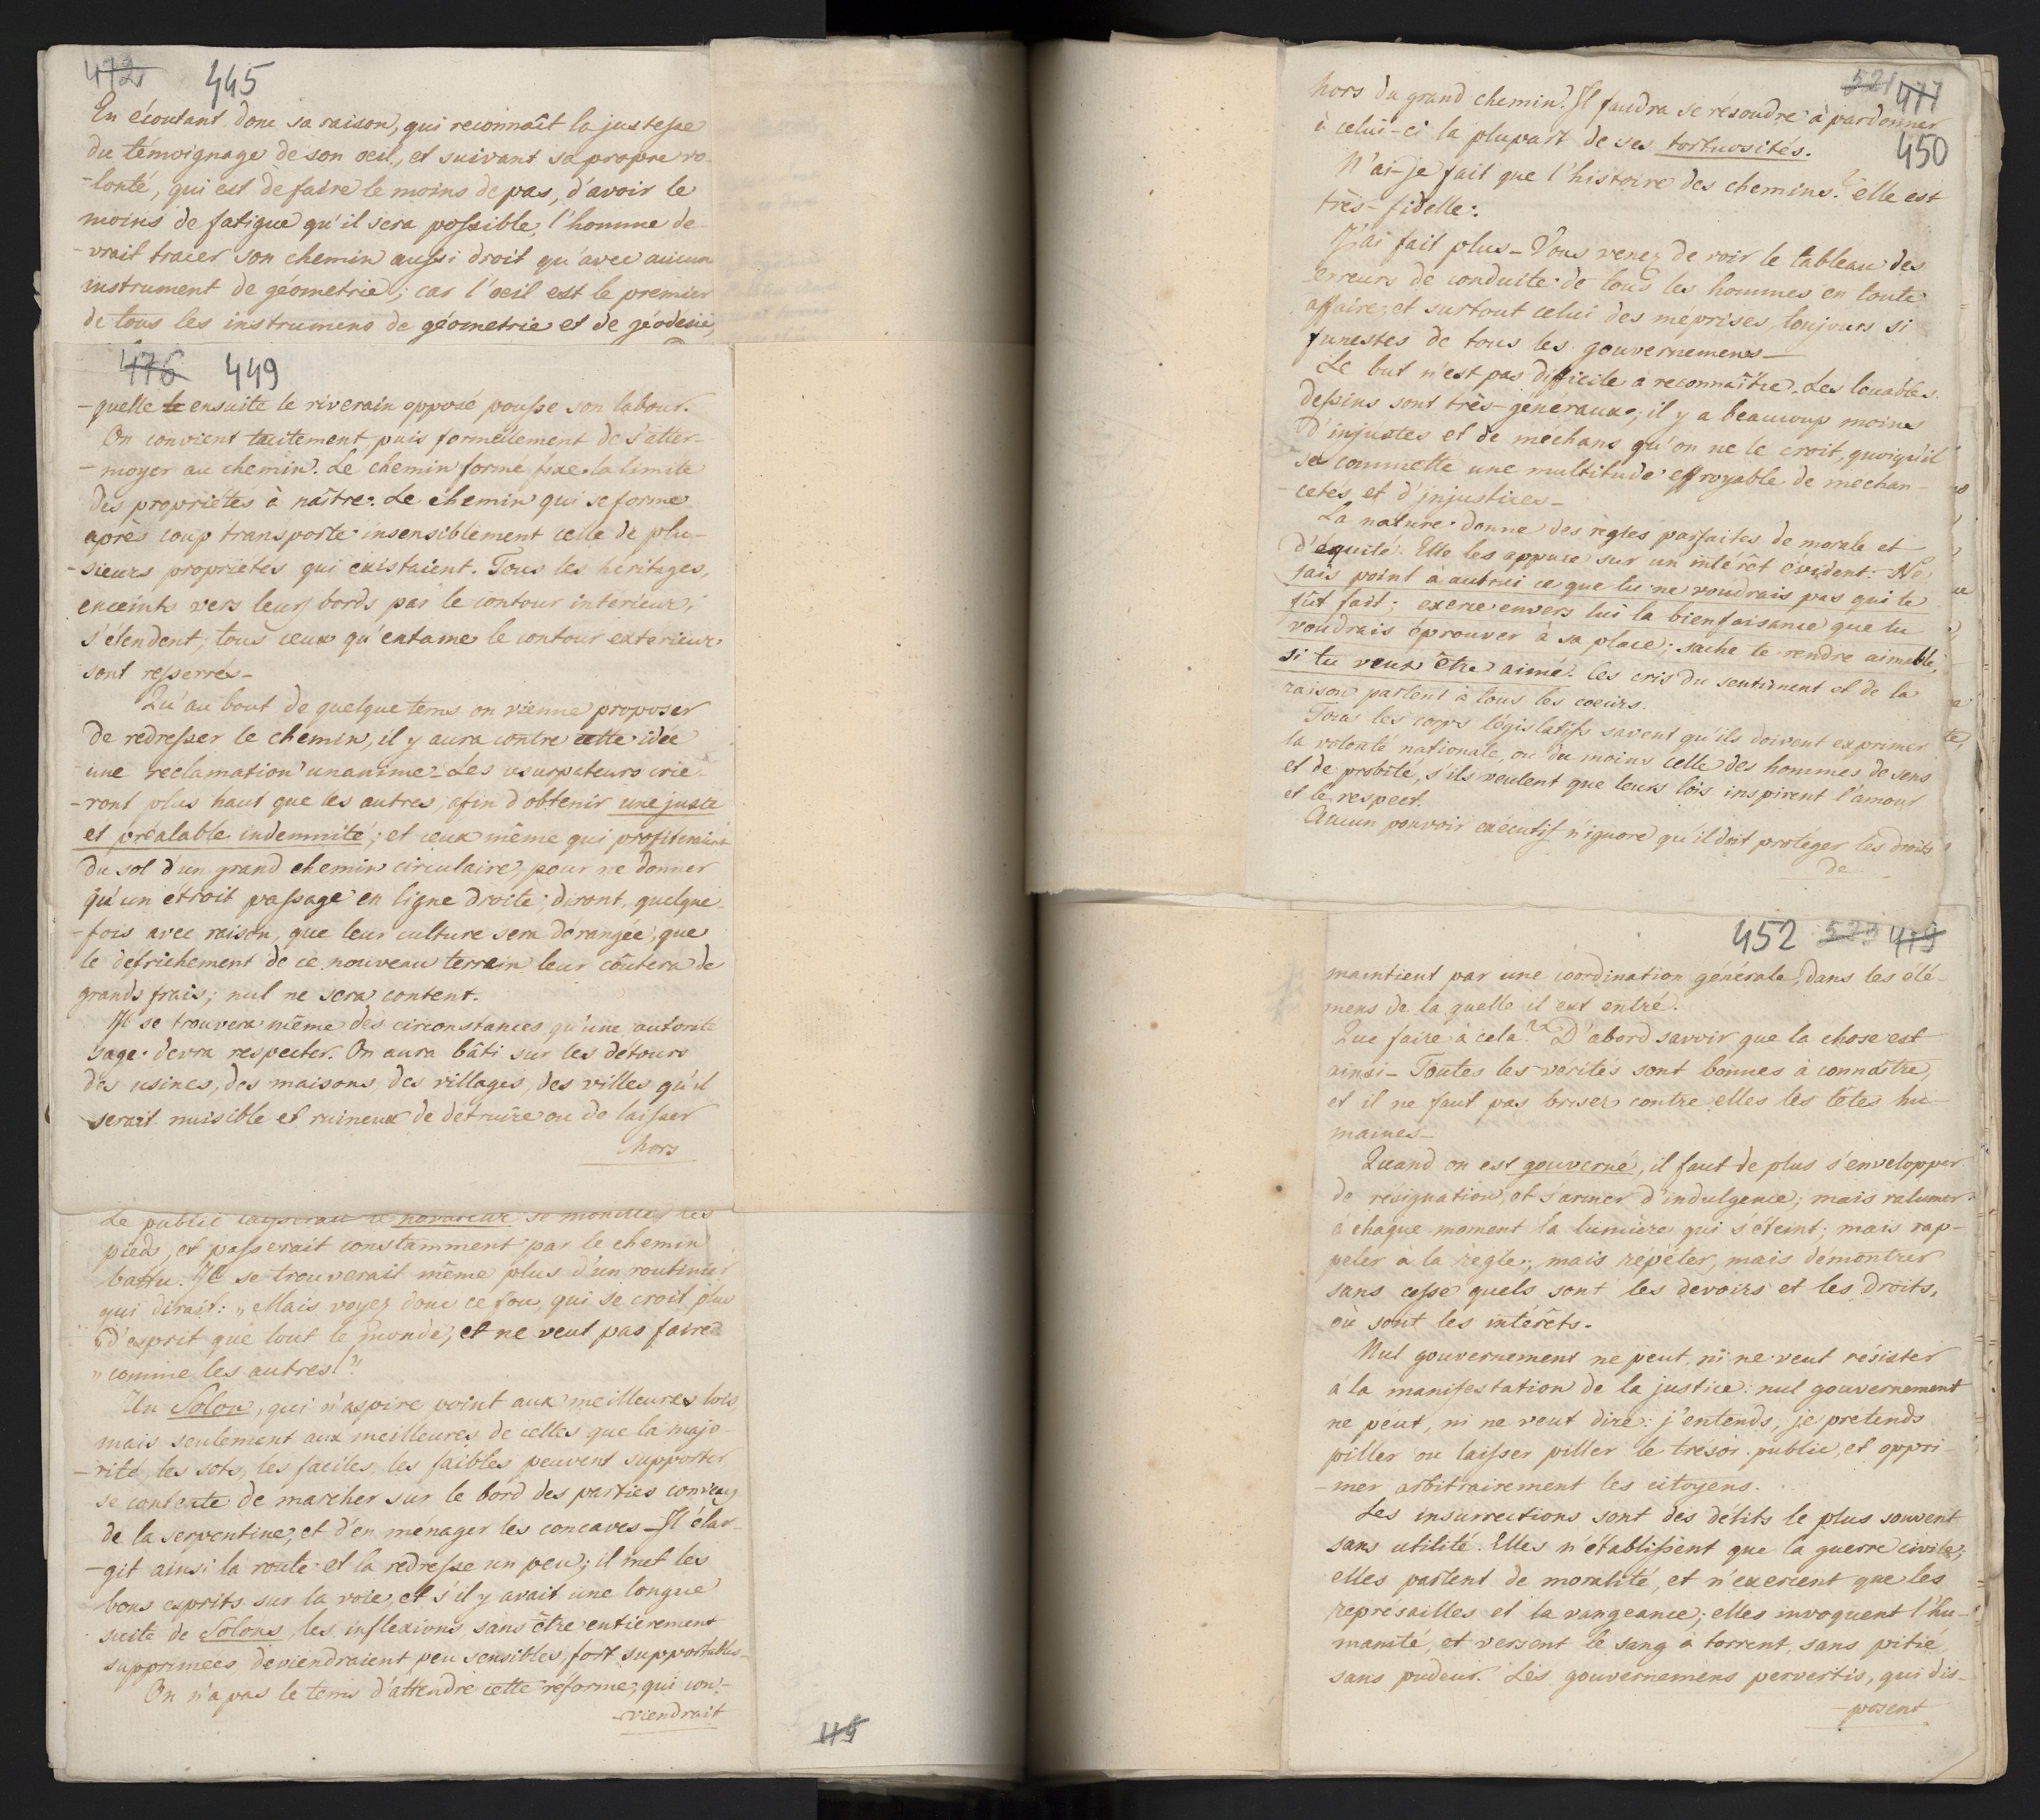 472 445
En écoutant donc sa raison, qui reconnaît la justesse
du témoignage de son oeil, et suivant sa propre vo-
-lonté, qui est de faire le moins de pas, d'avoir le
moins de fatigue qu'il sera possible, l'homme de-
-vrait tracer son chemin aussi droit qu'avec aucun
instrument de géometrie; car l'oeil est le premier
de tous les instrumens de géometrie et de géodesie,
476 449
-quelle le ensuite le riverain opposé pousse son labour.
On convient tacitement puis formellement de s'atter-
-moyer au chemin. Le chemin formé fixe la limite
des propriétés à naître. Le chemin qui se forme
après coup transporte insensiblement celle de plu-
-sieurs propriétés qui existaient. Tous les héritages,
enceints vers leurs bords par le contour intérieur,
s'étendent; tous ceux qu'entame le contour extérieur
sont resserrés-
Qu'au bout de quelque tems on vienne proposer
de redresser le chemin, il y aura contre cette idée
une reclamation unanime. Les usurpateurs crie-
-ront plus haut que les autres, afin d'obtenir une juste
et préalable indemnité; et ceux même qui profiteraient
du sol d'un grand chemin circulaire, pour ne donner
qu'un étroit passage en ligne droite, diront, quelque-
-fois avec raison, que leur culture sera dérangée, que
le défrichement de ce nouveau terrein leur coûtera de
grands frais; nul ne sera content.
Il se trouvera même des circonstances qu'une autorité
sage devra respecter. On aura bâti sur les détours
des usines, des maisons, des villages, des villes qu'il
serait nuisible et ruineux de détruire ou de laisser
hors
Le public laisserait le novateur se mouiller les
pieds, et passerait constamment par le chemin
battu. Il se trouverait même plus d'un routinier
qui dirait: "Mais voyez donc ce fou, qui se croit plus
"d'esprit que tout le monde, et ne veut pas faire
"comme les autres!"
Un Solon, qui n'aspire point aux meilleures lois
mais seulement aux meilleures de celles que la majo-
-rité, les sots, les faciles, les faibles peuvent supporter
se contente de marcher sur le bord des parties convexes
de la serpentine, et d'en ménager les concaves - Il élar-
-git ainsi la route et la redresse un peu; il met les
bons esprits sur la voie, et s'il y avait une longue
suite de Solons, les inflexions, sans être entièrement
supprimées, deviendraient peu sensibles, fort supportables-
On n'a pas le tems d'attendre cette réforme, qui con-
-viendrait
415
521 477
hors du grand chemin. Il faudra se résoudre à pardonner
à celui-ci la plupart de ses tortuosités.
450
N'ai-je fait que l'histoire des chemins? elle est
très-fidelle.
J'ai fait plus - Vous venez de voir le tableau des
erreurs de conduite de tous les hommes en toute
affaire, et surtout celui des méprises, toujours si
funestes de tous les gouvernemens-
Le but n'est pas difficile à reconnaître. Les louables
dessins sont très-généraux; il y a beaucoup moins
d'injustes et de méchans qu'on ne le croit, quoiqu'il
se commette une multitude effroyable de méchan-
-cetés et d'injustices-
La nature donne des règles parfaites de morale et
d'équité. Elle les appuie sur un intérêt évident: Ne
fais point à autrui ce que tu ne voudrais pas qui te
fût fait; exerce envers lui la bienfaisance que tu
voudrais éprouver à sa place; sache te rendre aimable,
si tu veux être aimé. Ces cris du sentiment et de la
raison parlent à tous les coeurs.
Tous les corps législatifs savent qu'ils doivent exprimer
la volonté nationale, ou du moins celle des hommes de sens
et de probité, s'ils veulent que leurs lois inspirent l'amour
et le respect.
Aucun pouvoir exécutif n'ignore qu'il doit protéger les droits
de
452 523 479
maintient par une coordination générale, dans les élé-
mens de la quelle il est entré.
Que faire à cela? D'abord savoir que la chose est
ainsi - Toutes les vérités sont bonnes à connaître,
et il ne faut pas briser contre elles les têtes hu-
maines-
Quand on est gouverné, il faut de plus s'envelopper
de résignation, et s'armer d'indulgence; mais ralumer
à chaque moment la lumière qui s'éteint; mais rap-
peler à la règle; mais répéter, mais démontrer
sans cesse quels sont les devoirs et les droits,
où sont les intérêts.
Nul gouvernement ne peut, ni ne veut résister
à la manifestation de la justice: nul gouvernement
ne peut, ni ne veut dire: j'entends, je prétends
piller ou laisser piller le trésor public, et oppri-
-mer arbitrairement les citoyens.
Les insurrections sont des délits le plus souvent
sans utilité. Elles n'établissent que la guerre civile;
elles parlent de moralité, et n'exercent que les
représailles et la vangeance; elles invoquent l'hu-
manité, et versent le sang à torrent, sans pitié,
sans pudeur. Les gouvernemens pervertis, qui dis-
-posent